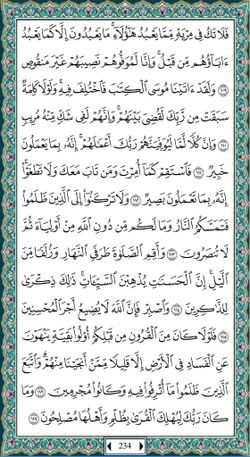 فَلَا تَكُ فِي مِرْيَةٍ مِّمَّا يَعْبُدُ هَٰٓؤُلَآءِ ۚ مَا يَعْبُدُونَ إِلَّا كَمَا يَعْبُدُ
ءَابَآؤُهُم مِّن قَبْلُ ۚ وَإِنَّا لَمُوَفُّوهُمْ نَصِيبَهُمْ غَيْرَ مَنقُوصٍ
١٠٩ وَلَقَدْ ءَاتَيْنَا مُوسَى ٱلْكِتَٰبَ فَٱخْتُلِفَ فِيهِ ۚ وَلَوْلَا كَلِمَةٌ
سَبَقَتْ مِن رَّبِّكَ لَقُضِيَ بَيْنَهُمْ ۚ وَإِنَّهُمْ لَفِي شَكٍّ مِّنْهُ مُرِيبٍ
١١٠ وَإِنَّ كُلًّا لَّمَّا لَيُوَفِّيَنَّهُمْ رَبُّكَ أَعْمَٰلَهُمْ ۚ إِنَّهُۥ بِمَا يَعْمَلُونَ
خَبِيرٌ ١١١ فَٱسْتَقِمْ كَمَآ أُمِرْتَ وَمَن تَابَ مَعَكَ وَلَا تَطْغَوْا۟ ۚ
إِنَّهُۥ بِمَا تَعْمَلُونَ بَصِيرٌ ١١٢ وَلَا تَرْكَنُوٓا۟ إِلَى ٱلَّذِينَ ظَلَمُوا۟
فَتَمَسَّكُمُ ٱلنَّارُ وَمَا لَكُم مِّن دُونِ ٱللَّهِ مِنْ أَوْلِيَآءَ ثُمَّ
لَا تُنصَرُونَ ١١٣ وَأَقِمِ ٱلصَّلَوٰةَ طَرَفَيِ ٱلنَّهَارِ وَزُلَفًا مِّنَ
ٱلَّيْلِ ۚ إِنَّ ٱلْحَسَنَٰتِ يُذْهِبْنَ ٱلسَّيِّـَٔاتِ ۚ ذَٰلِكَ ذِكْرَىٰ
لِلذَّٰكِرِينَ ١١٤ وَٱصْبِرْ فَإِنَّ ٱللَّهَ لَا يُضِيعُ أَجْرَ ٱلْمُحْسِنِينَ
١١٥ فَلَوْلَا كَانَ مِنَ ٱلْقُرُونِ مِن قَبْلِكُمْ أُو۟لُوا۟ بَقِيَّةٍ يَنْهَوْنَ
عَنِ ٱلْفَسَادِ فِي ٱلْأَرْضِ إِلَّا قَلِيلًا مِّمَّنْ أَنجَيْنَا مِنْهُمْ ۗ وَٱتَّبَعَ
ٱلَّذِينَ ظَلَمُوا۟ مَآ أُتْرِفُوا۟ فِيهِ وَكَانُوا۟ مُجْرِمِينَ ١١٦ وَمَا
كَانَ رَبُّكَ لِيُهْلِكَ ٱلْقُرَىٰ بِظُلْمٍ وَأَهْلُهَا مُصْلِحُونَ ١١٧
234